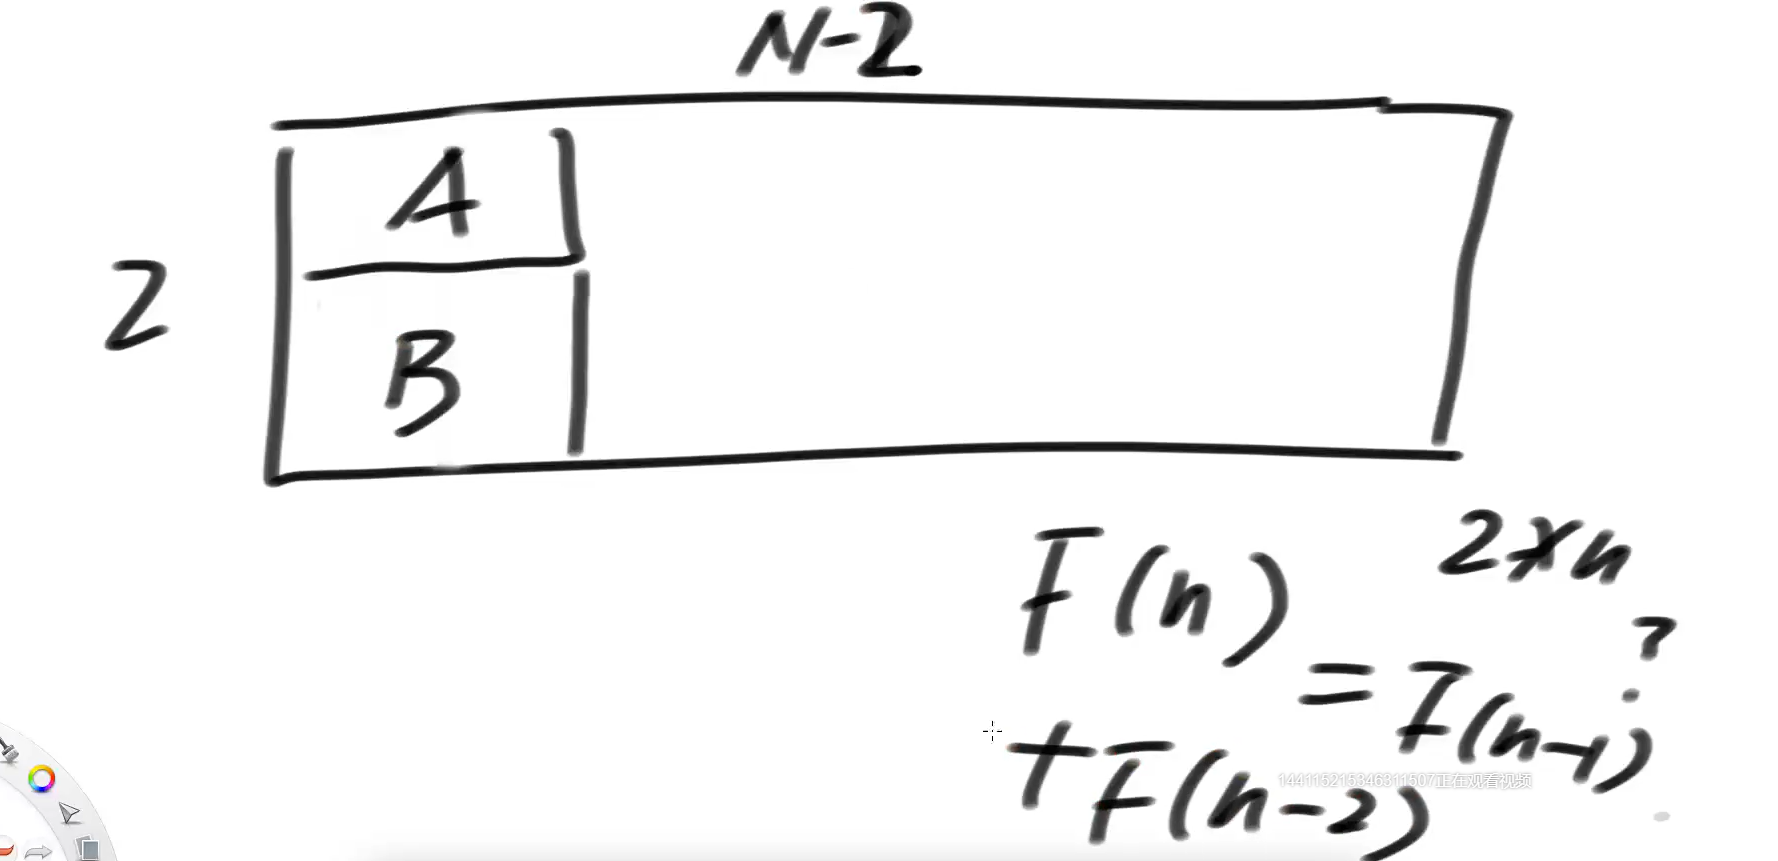 N-2
A
2
B
2×n
F(n)
?
= F(n-1)
+F(n-2)
144115215346311507正在观看视频